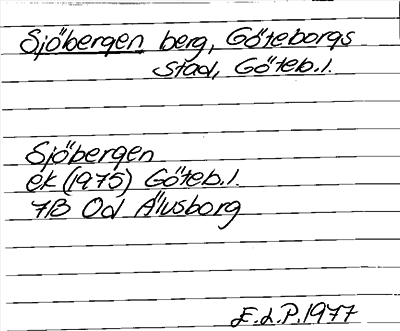 Sjöbergen berg, Göteborgs
stad, Göteb.l.
Sjöbergen
ek (1975) Göteb.l.
7B Od Älvsborg
E.L.P.1977